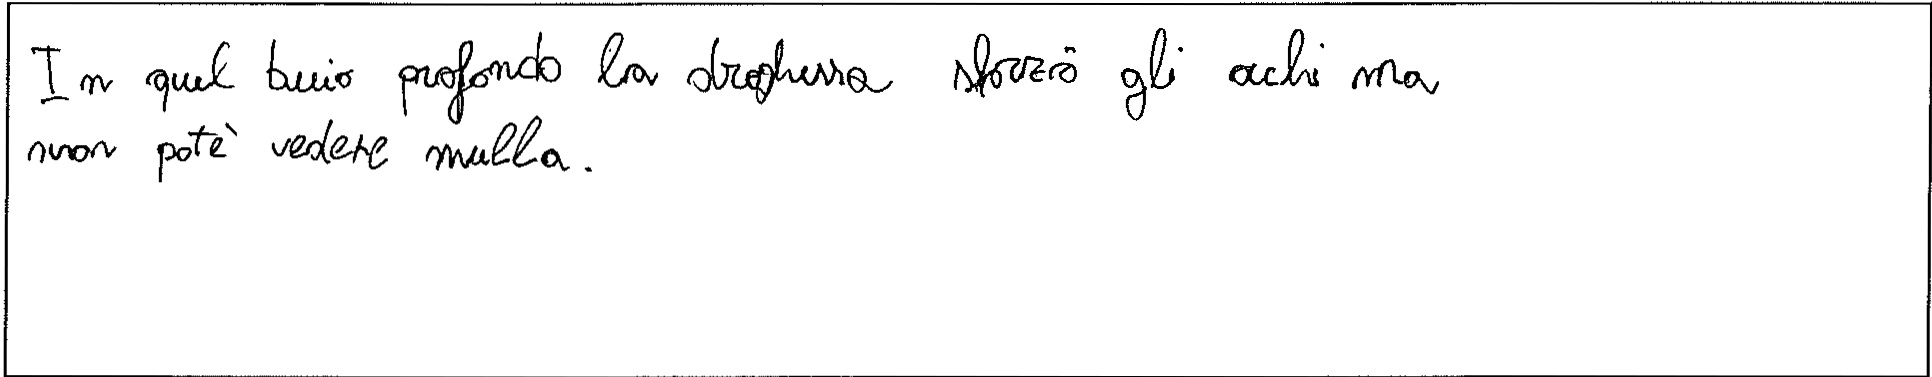 In quel buio profondo la draghessa sforzò gli achi ma
non potè vedere nulla.